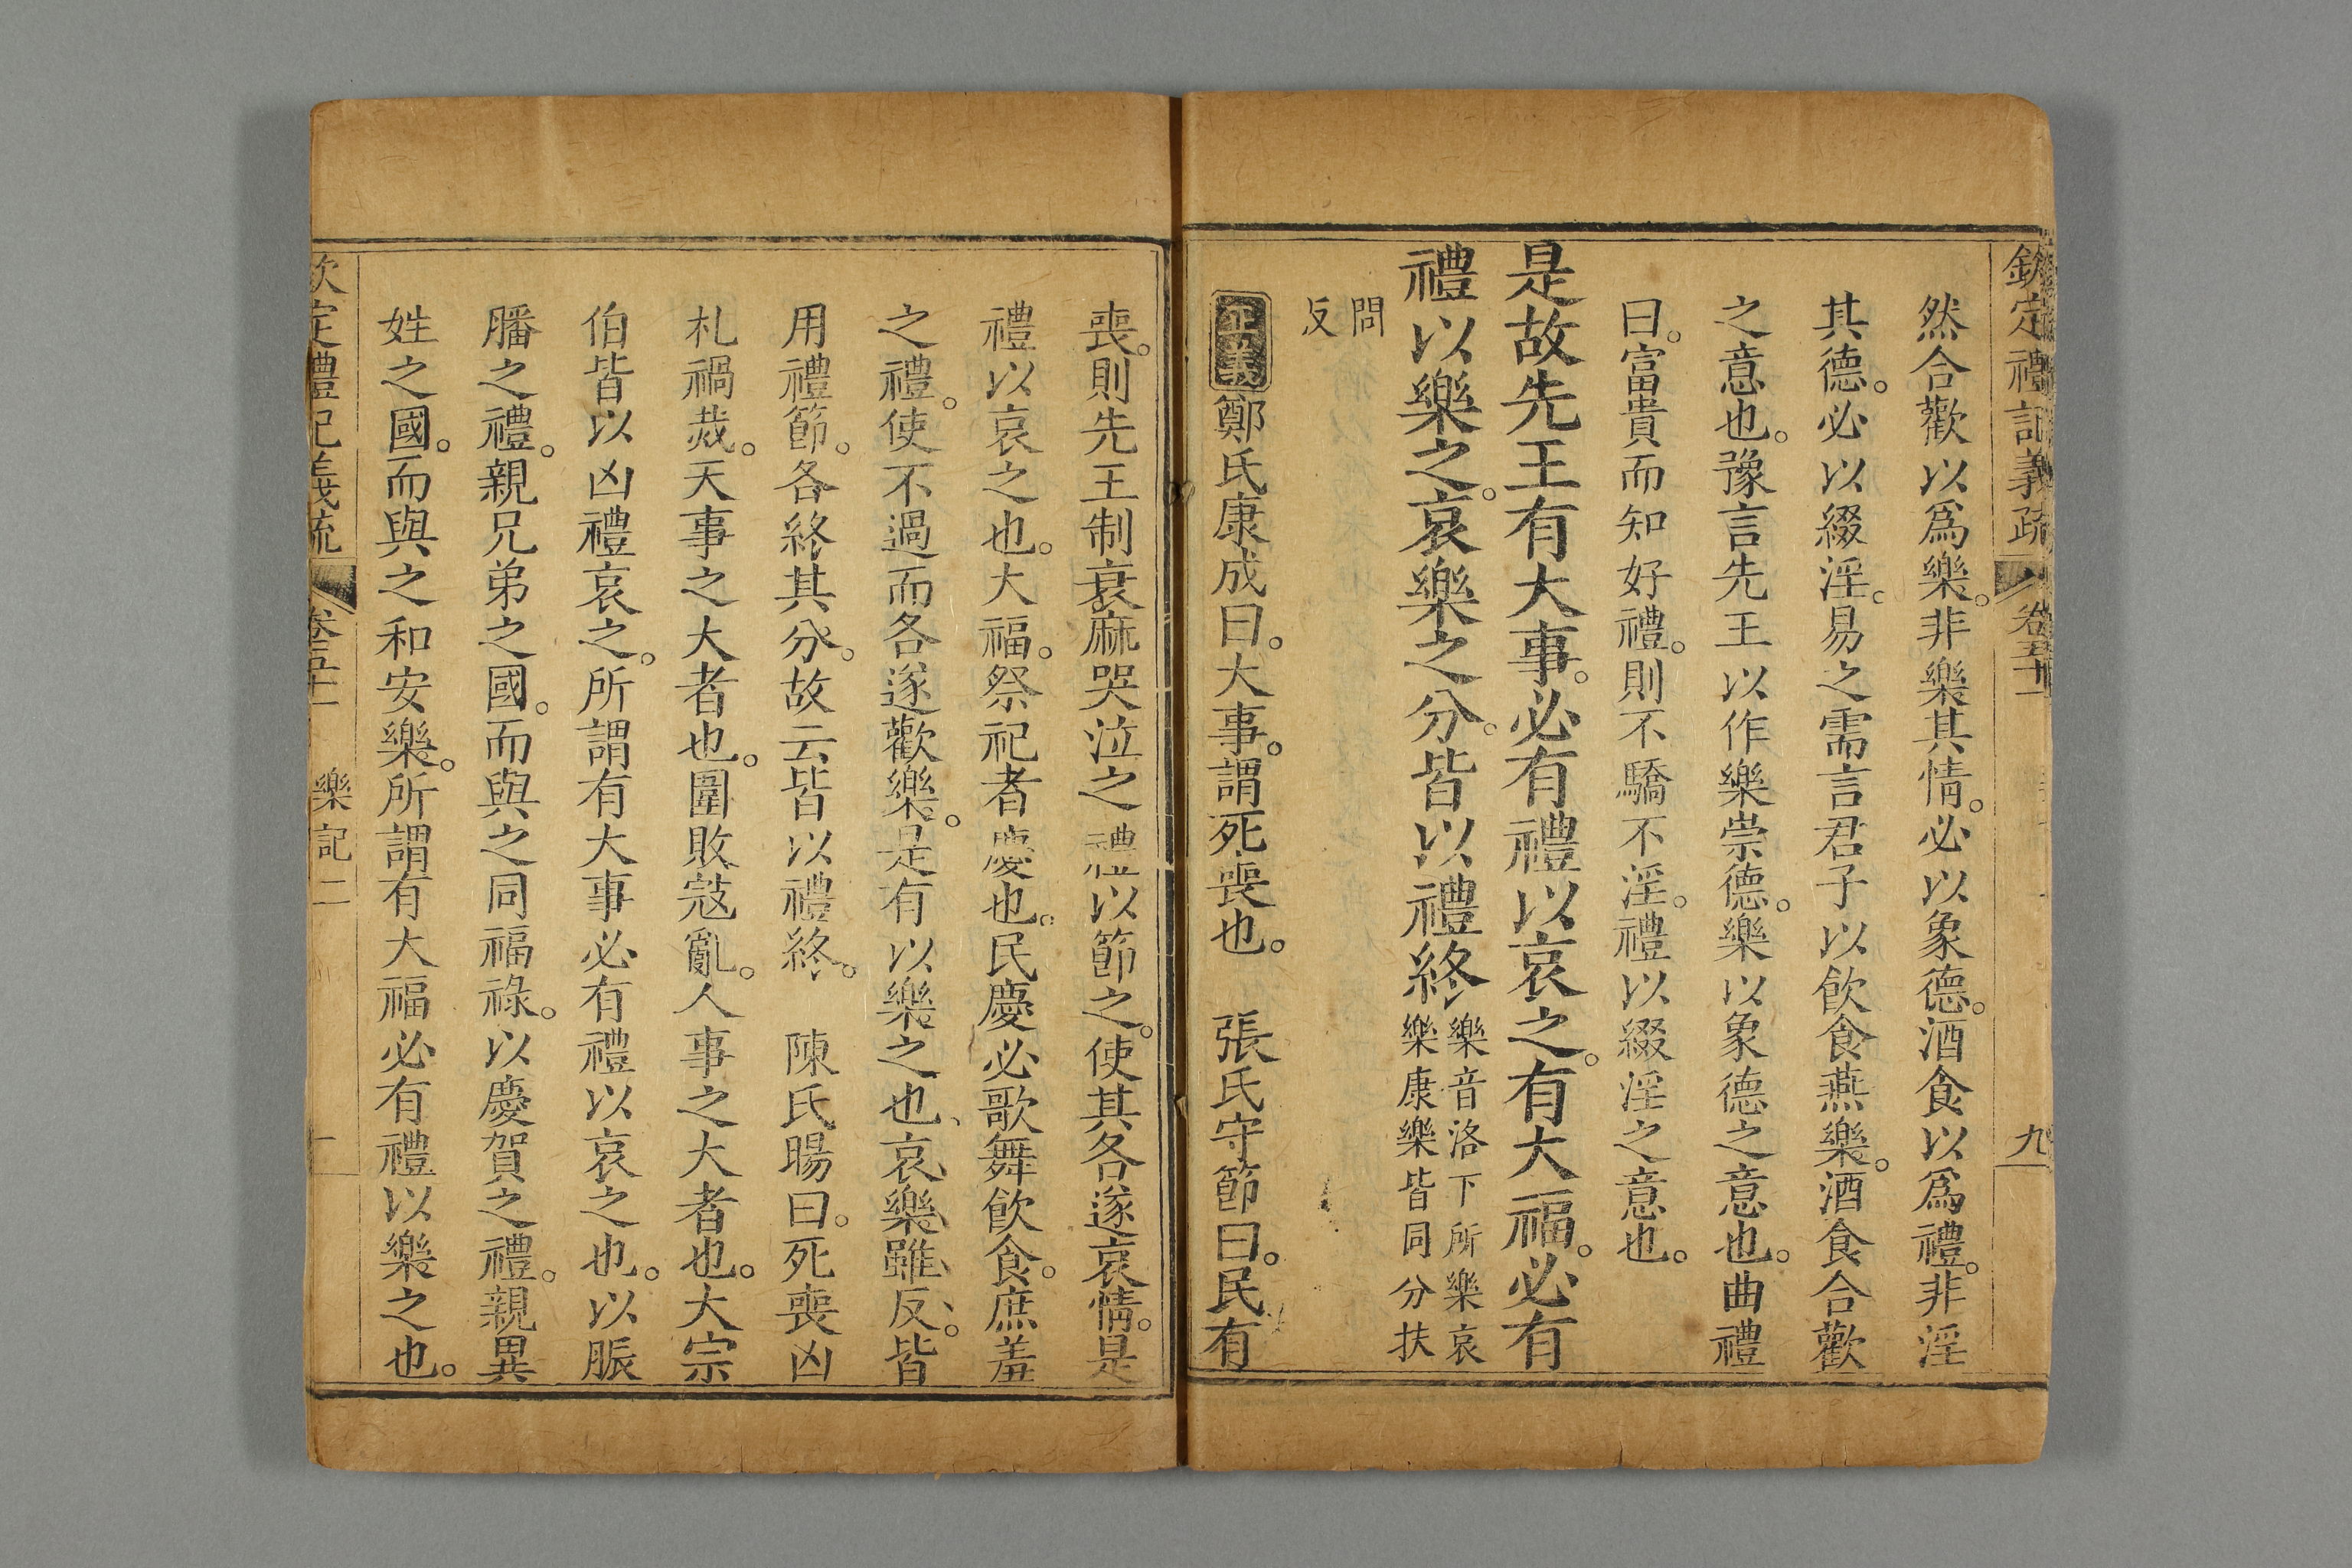 欽定禮記義疏 卷五十一 九
然合歡以爲樂。非樂其情。必以象德。酒食以爲禮。非淫
其德。必以綴淫。易之需言君子以飲食燕樂。酒食合歡
之意也。豫言先王以作樂崇德。樂以象德之意也。曲禮
曰。富貴而知好禮。則不驕不淫。禮以綴淫之意也。
是故先王有大事。必有禮以哀之。有大福。必有
禮以樂之。哀樂之分。皆以禮終
樂音洛下所樂哀
樂康樂皆同分扶
問
反
正義鄭氏康成曰。大事。謂死喪也。 張氏守節曰。民有
喪。則先王制衰麻哭泣之禮以節之。使其各遂哀情。是
禮以哀之也。大福。祭祀者慶也。民慶必歌舞飲食。庶羞
之禮。使不過而各遂歡樂。是有以樂之也、哀樂雖反。皆
用禮節。各終其分。故云皆以禮終。 陳氏暘曰。死喪凶
札禍烖。天事之大者也。圍敗寇亂。人事之大者也。大宗
伯皆以凶禮哀之。所謂有大事必有禮以哀之也。以脤
膰之禮。親兄弟之國。而與之同福祿。以慶賀之禮。親異
姓之國。而與之和安樂。所謂有大福必有禮以樂之也。
欽定禮記義疏 卷五十一 樂記二